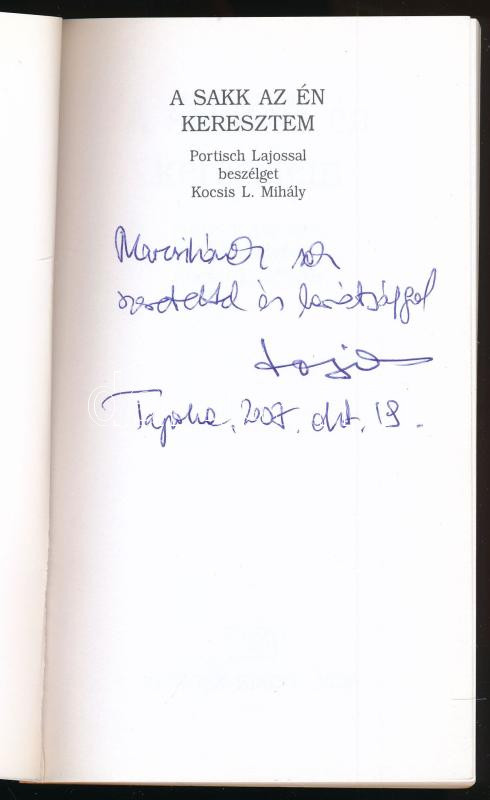 A SAKK AZ ÉN
KERESZTEM
Portisch Lajossal
beszélget
Kocsis L. Mihály
sok
szeretettel és barátsággal
Tapolca, 2007. okt. 19.